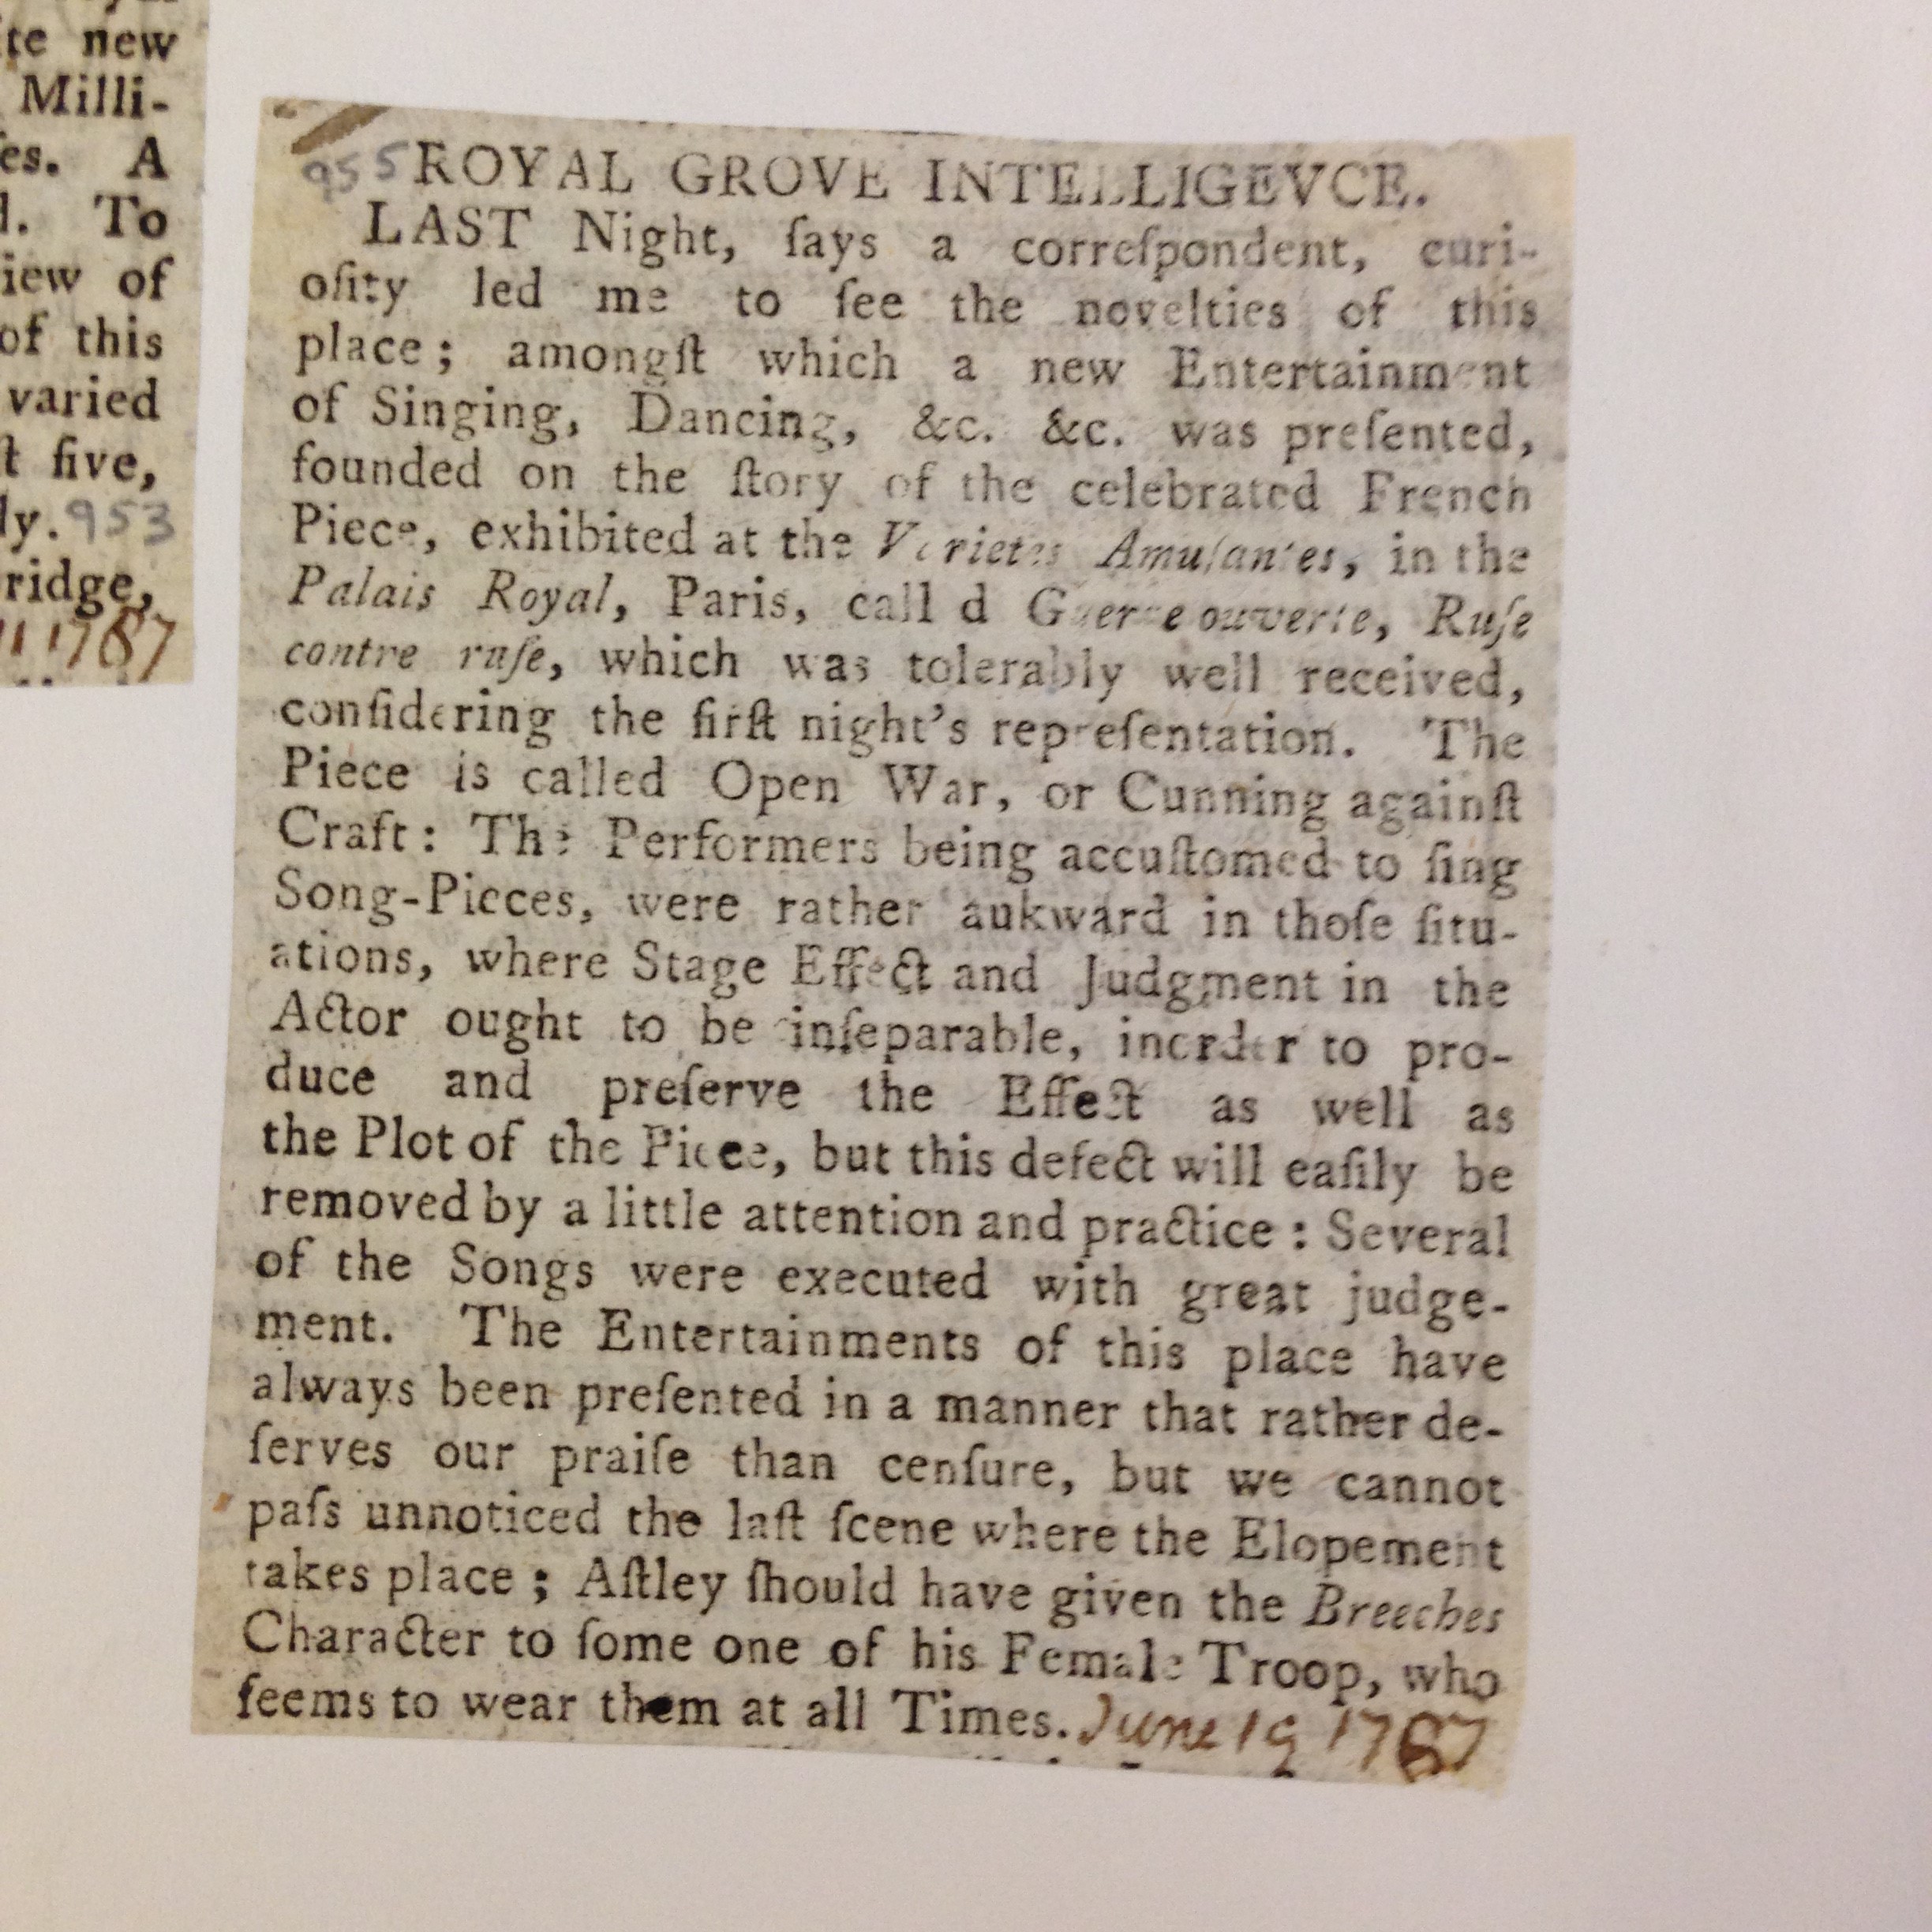 te new
Milli-
ſes. A
d. To
iew of
of this
varied
ſt five,
ly. 953
ridge,
11 1787
955 ROYAL GROVE INTELLIGEVCE.
LAST Night, ſays a correſpondent, curi-
oſity led me to ſee the novelties of this
place; amongſt which a new Entertainment
of Singing, Dancing, &c. &c. was preſented,
founded on the ſtory of the celebrated French
Piece, exhibited at the Varietes Amuſantes, in the
Palais Royal, Paris, call d Guerre ouverte, Ruſe
contre ruſe, which was tolerably well received,
conſidering the firſt night's repreſentation. The
Piece is called Open War, or Cunning againſt
Craft: The Performers being accuſtomed to ſing
Song-Pieces, were rather aukward in thoſe ſitu-
ations, where Stage Effect and Judgment in the
Actor ought to be inſeparable, inorder to pro-
duce and preſerve the Effect as well as
the Plot of the Piece, but this defect will eaſily be
removed by a little attention and practice: Several
of the Songs were executed with great judge-
ment. The Entertainments of this place have
always been preſented in a manner that rather de-
ſerves our praiſe than cenſure, but we cannot
paſs unnoticed the laſt ſcene where the Elopement
takes place; Aſtley ſhould have given the Breeches
Character to ſome one of his Female Troop, who
ſeems to wear them at all Times. June 19 1787